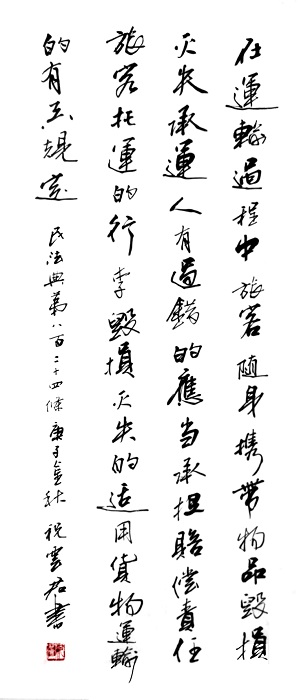 在運輸過程中旅客随身携帶物品毀損
灭失承運人有過錯的應当承担賠償責任
旅客托運的行李毀損灭失的适用貨物運輸
的有关規定 民法典第八百二十四條庚子金秋 祝雲君書